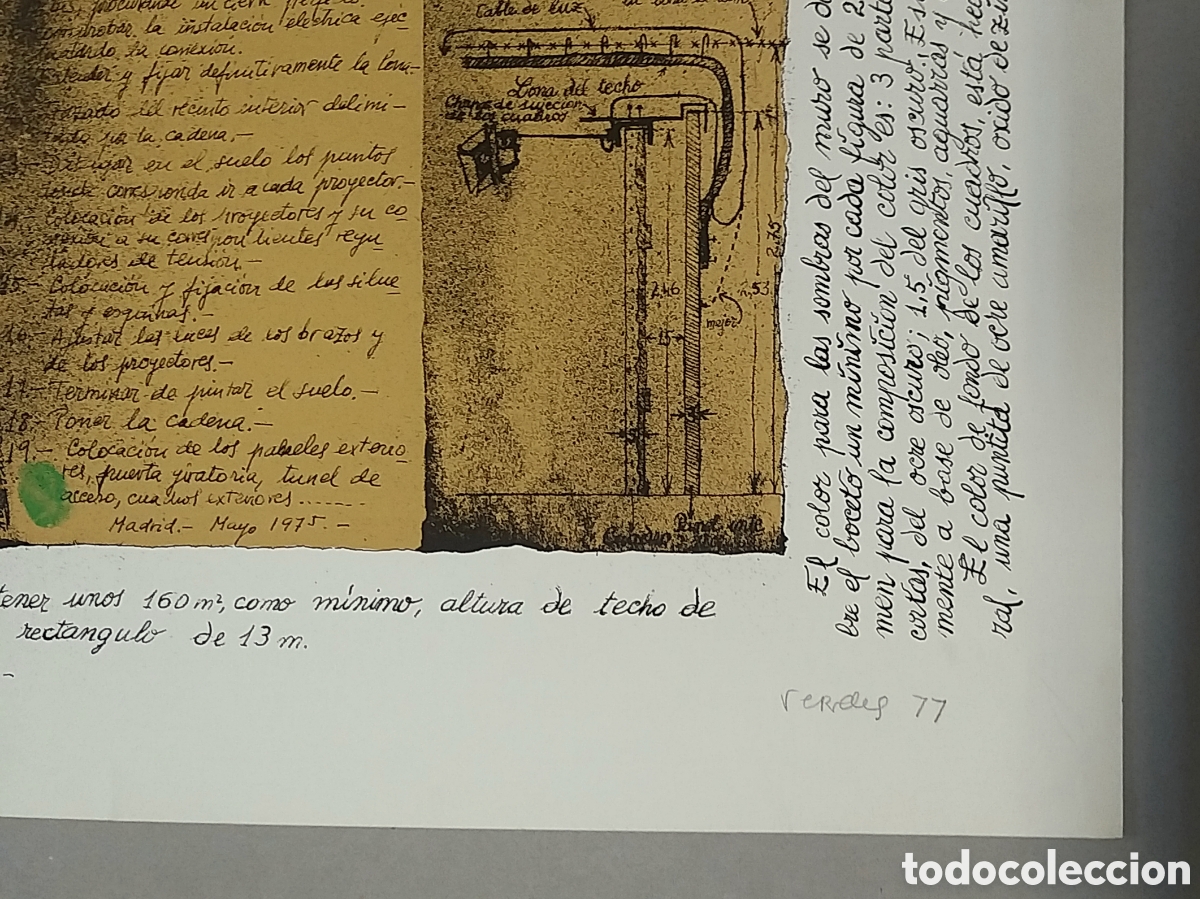 comprobar la instalación eléctrica ejec
la conexión.
y fijar definitivamente la lona.—
Trazado del recinto interior delimi—
tado por la cadena.—
Dibujar en el suelo los puntos
donde corresponda ir a cada proyector.—
Colocación de los proyectores y su co
nexión a su correspondientes regu
ladores de tensión.—
15.— Colocación y fijación de las silue—
tas y esquinas.—
16.— Ajustar las luces de los brazos y
de los proyectores.—
17.— Terminar de pintar el suelo.—
18.— Poner la cadena.—
19.— Colocación de los paneles exterio—
res, puerta giratoria, tunel de
acceso, cuadros exteriores......
Madrid.— Mayo 1975.—
Cable de luz
Lona del techo
Chapa de sujeción
de los cuadros
2,46
2,53
2,75
15
mejor
tener unos 160 m², como mínimo, altura de techo de
rectangulo de 13 m.
El color para las sombras del muro se d
bre el boceto un miñimo por cada figura de 2
men para la composición del color es: 3 parte
cortas, del ocre oscuro; 1,5 del gris oscuro. Es
mente a base de oleo, pigmentos, aguarras y
El color de fondo de los cuadros, está hec
ral, una puntita de ocre amarillo, oxido de zin
77
todocoleccion